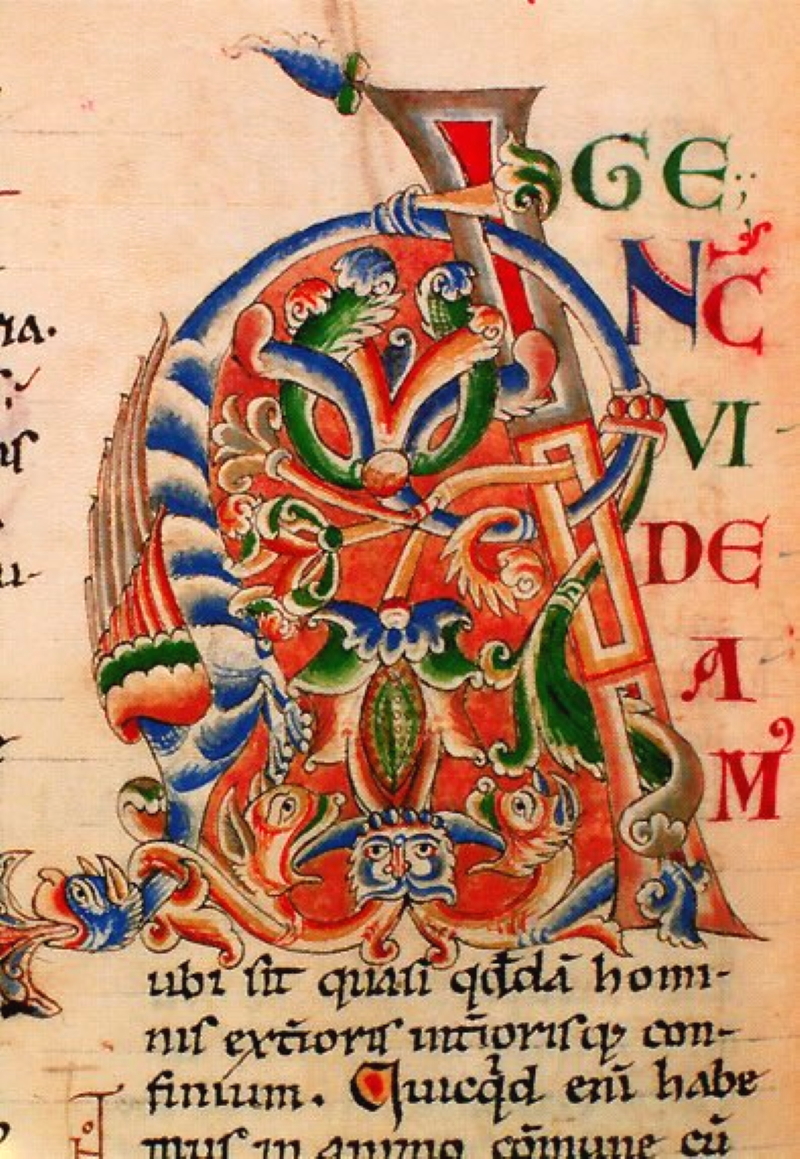 AGE;
NC̄
VI-
DE
A
Mꝰ
ubi ſit quaſi qđdā homi-
niſ ext̄iorıſ int̄iorıſq; con-
finium. Quicqͥd enī habe
muſ in animo cōmune cū